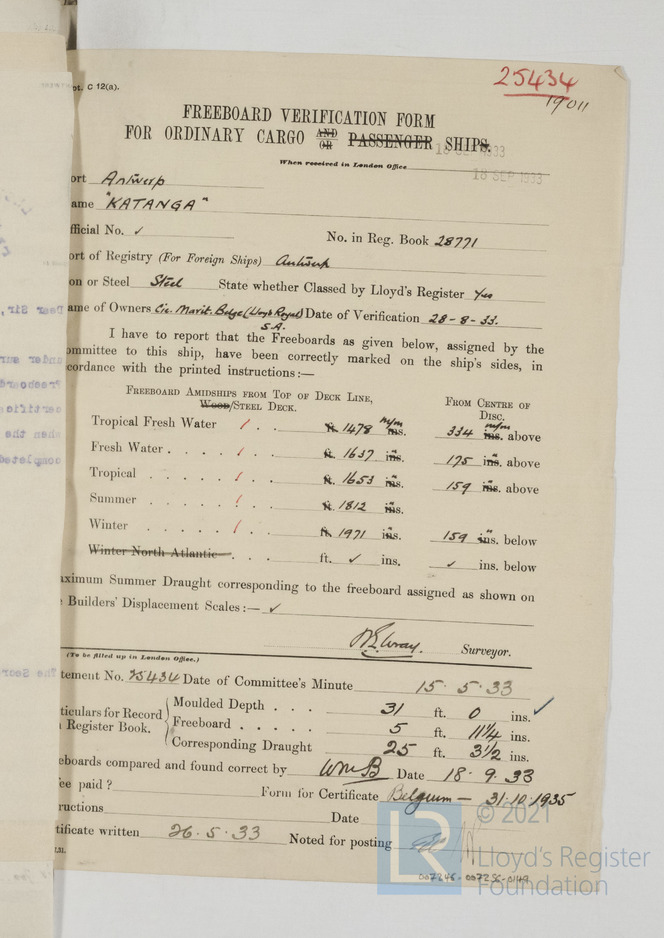 25434
19011
pt. C 12(a).
FREEBOARD VERIFICATION FORM
FOR ORDINARY CARGO AND OR PASSENGER SHIPS.
18 SEP 1933
When received in London Office
18 SEP 1933
ort Antwerp
ame "KATANGA"
fficial No. ✓ No. in Reg. Book 28771
ort of Registry (For Foreign Ships) Antwerp
on or Steel Steel State whether Classed by Lloyd's Register Yes
ame of Owners Cie. Marit. Belge (Lloyd Royal) S.A. Date of Verification 28-8-33.
I have to report that the Freeboards as given below, assigned by the
ommittee to this ship, have been correctly marked on the ship's sides, in
cordance with the printed instructions:—
FREEBOARD AMIDSHIPS FROM TOP OF DECK LINE, FROM CENTRE OF
WOOD/STEEL DECK. DISC.
Tropical Fresh Water . . ft. 1478 m/m ins. 334 m/m ins. above
Fresh Water . . . . ft. 1637 ins. 175 ins. above
Tropical . . . . . ft. 1653 ins. 159 ins. above
Summer . . . . . ft. 1812 ins.
Winter . . . . . ft. 1971 ins. 159 ins. below
Winter North Atlantic . . . ft. ✓ ins. ✓ ins. below
aximum Summer Draught corresponding to the freeboard assigned as shown on
Builders' Displacement Scales:— ✓
Surveyor.
(To be filled up in London Office.)
tement No. 25434 Date of Committee's Minute 15.5.33
ticulars for Record Register Book.
Moulded Depth . . . 31 ft. 0 ins. ✓
Freeboard . . . . . 5 ft. 11¼ ins.
Corresponding Draught 25 ft. 3½ ins.
eboards compared and found correct by WmB Date 18.9.33
ee paid? Form for Certificate Belgium — 31.10.1935
ructions Date
tificate written 26.5.33 Noted for posting
007246-007256-0149
© 2021
LR
Lloyd's Register
Foundation
Dear Sir,
The Secr